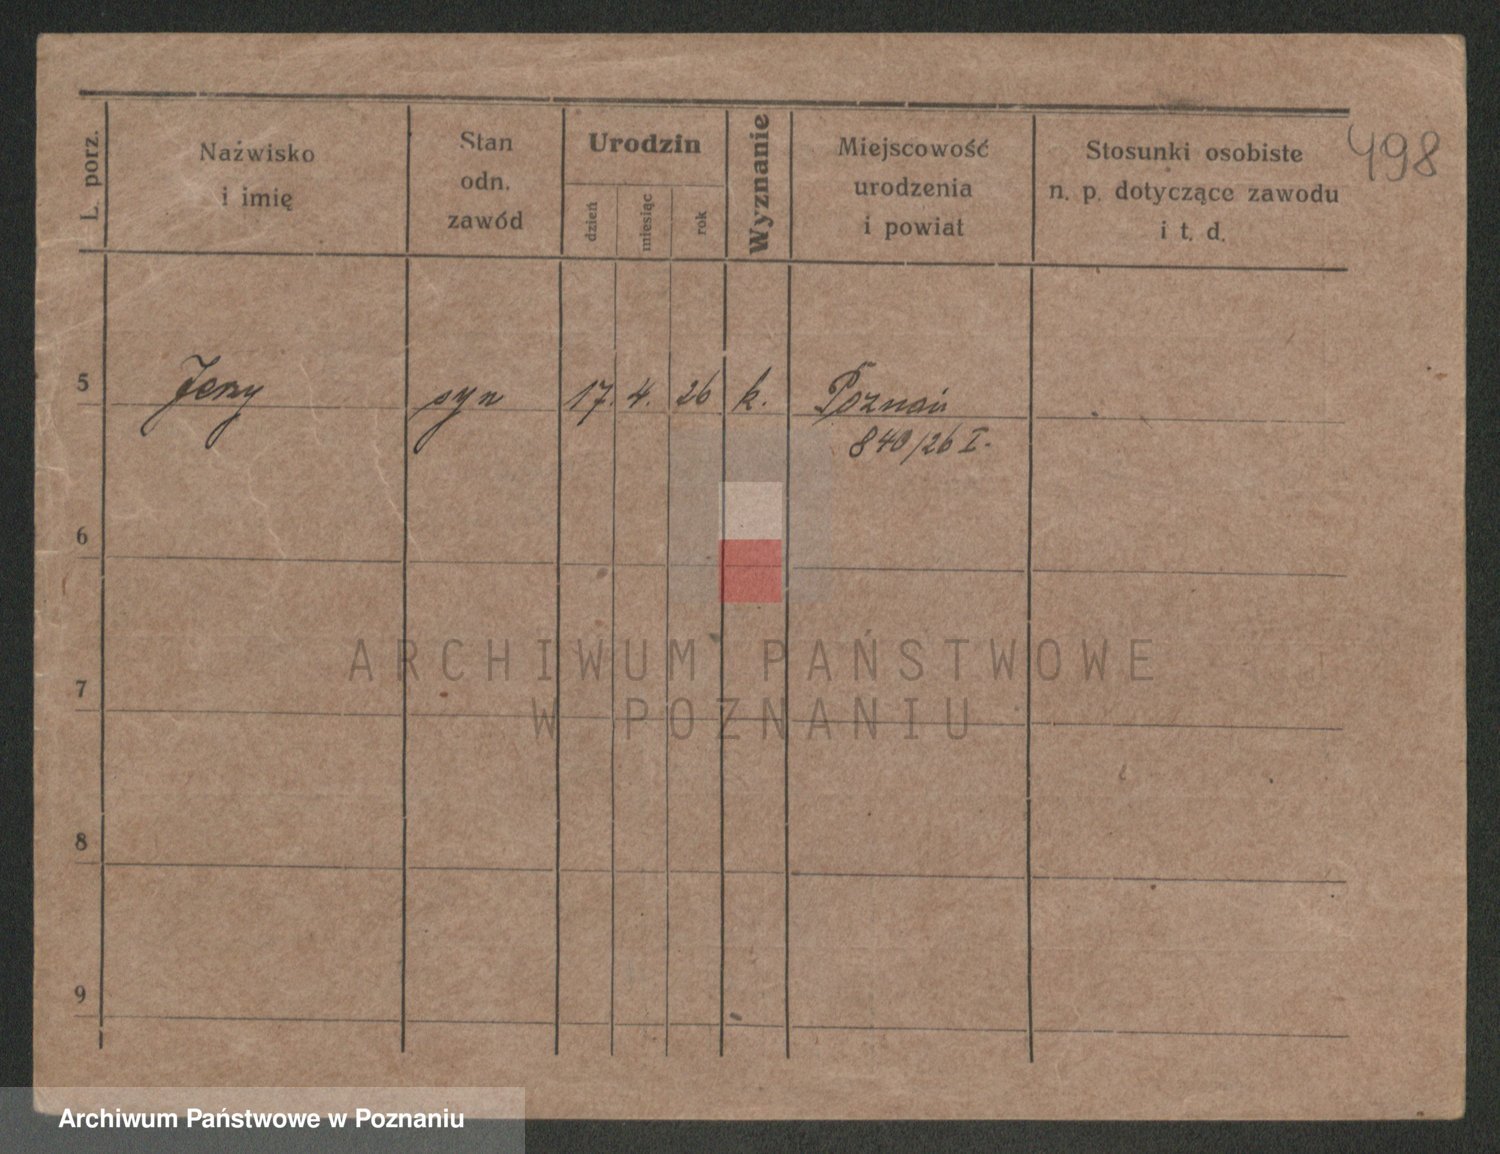 498
L. porz.
Nazwisko
i imię
Stan
odn.
zawód
Urodzin
dzień
miesiąc
rok
Wyznanie
Miejscowość
urodzenia
i powiat
Stosunki osobiste
n. p. dotyczące zawodu
i t. d.
5 Jerzy syn 17. 4. 26 k. Poznań
840/26 I.
6
7
8
9
ARCHIWUM PAŃSTWOWE
W POZNANIU
Archiwum Państwowe w Poznaniu